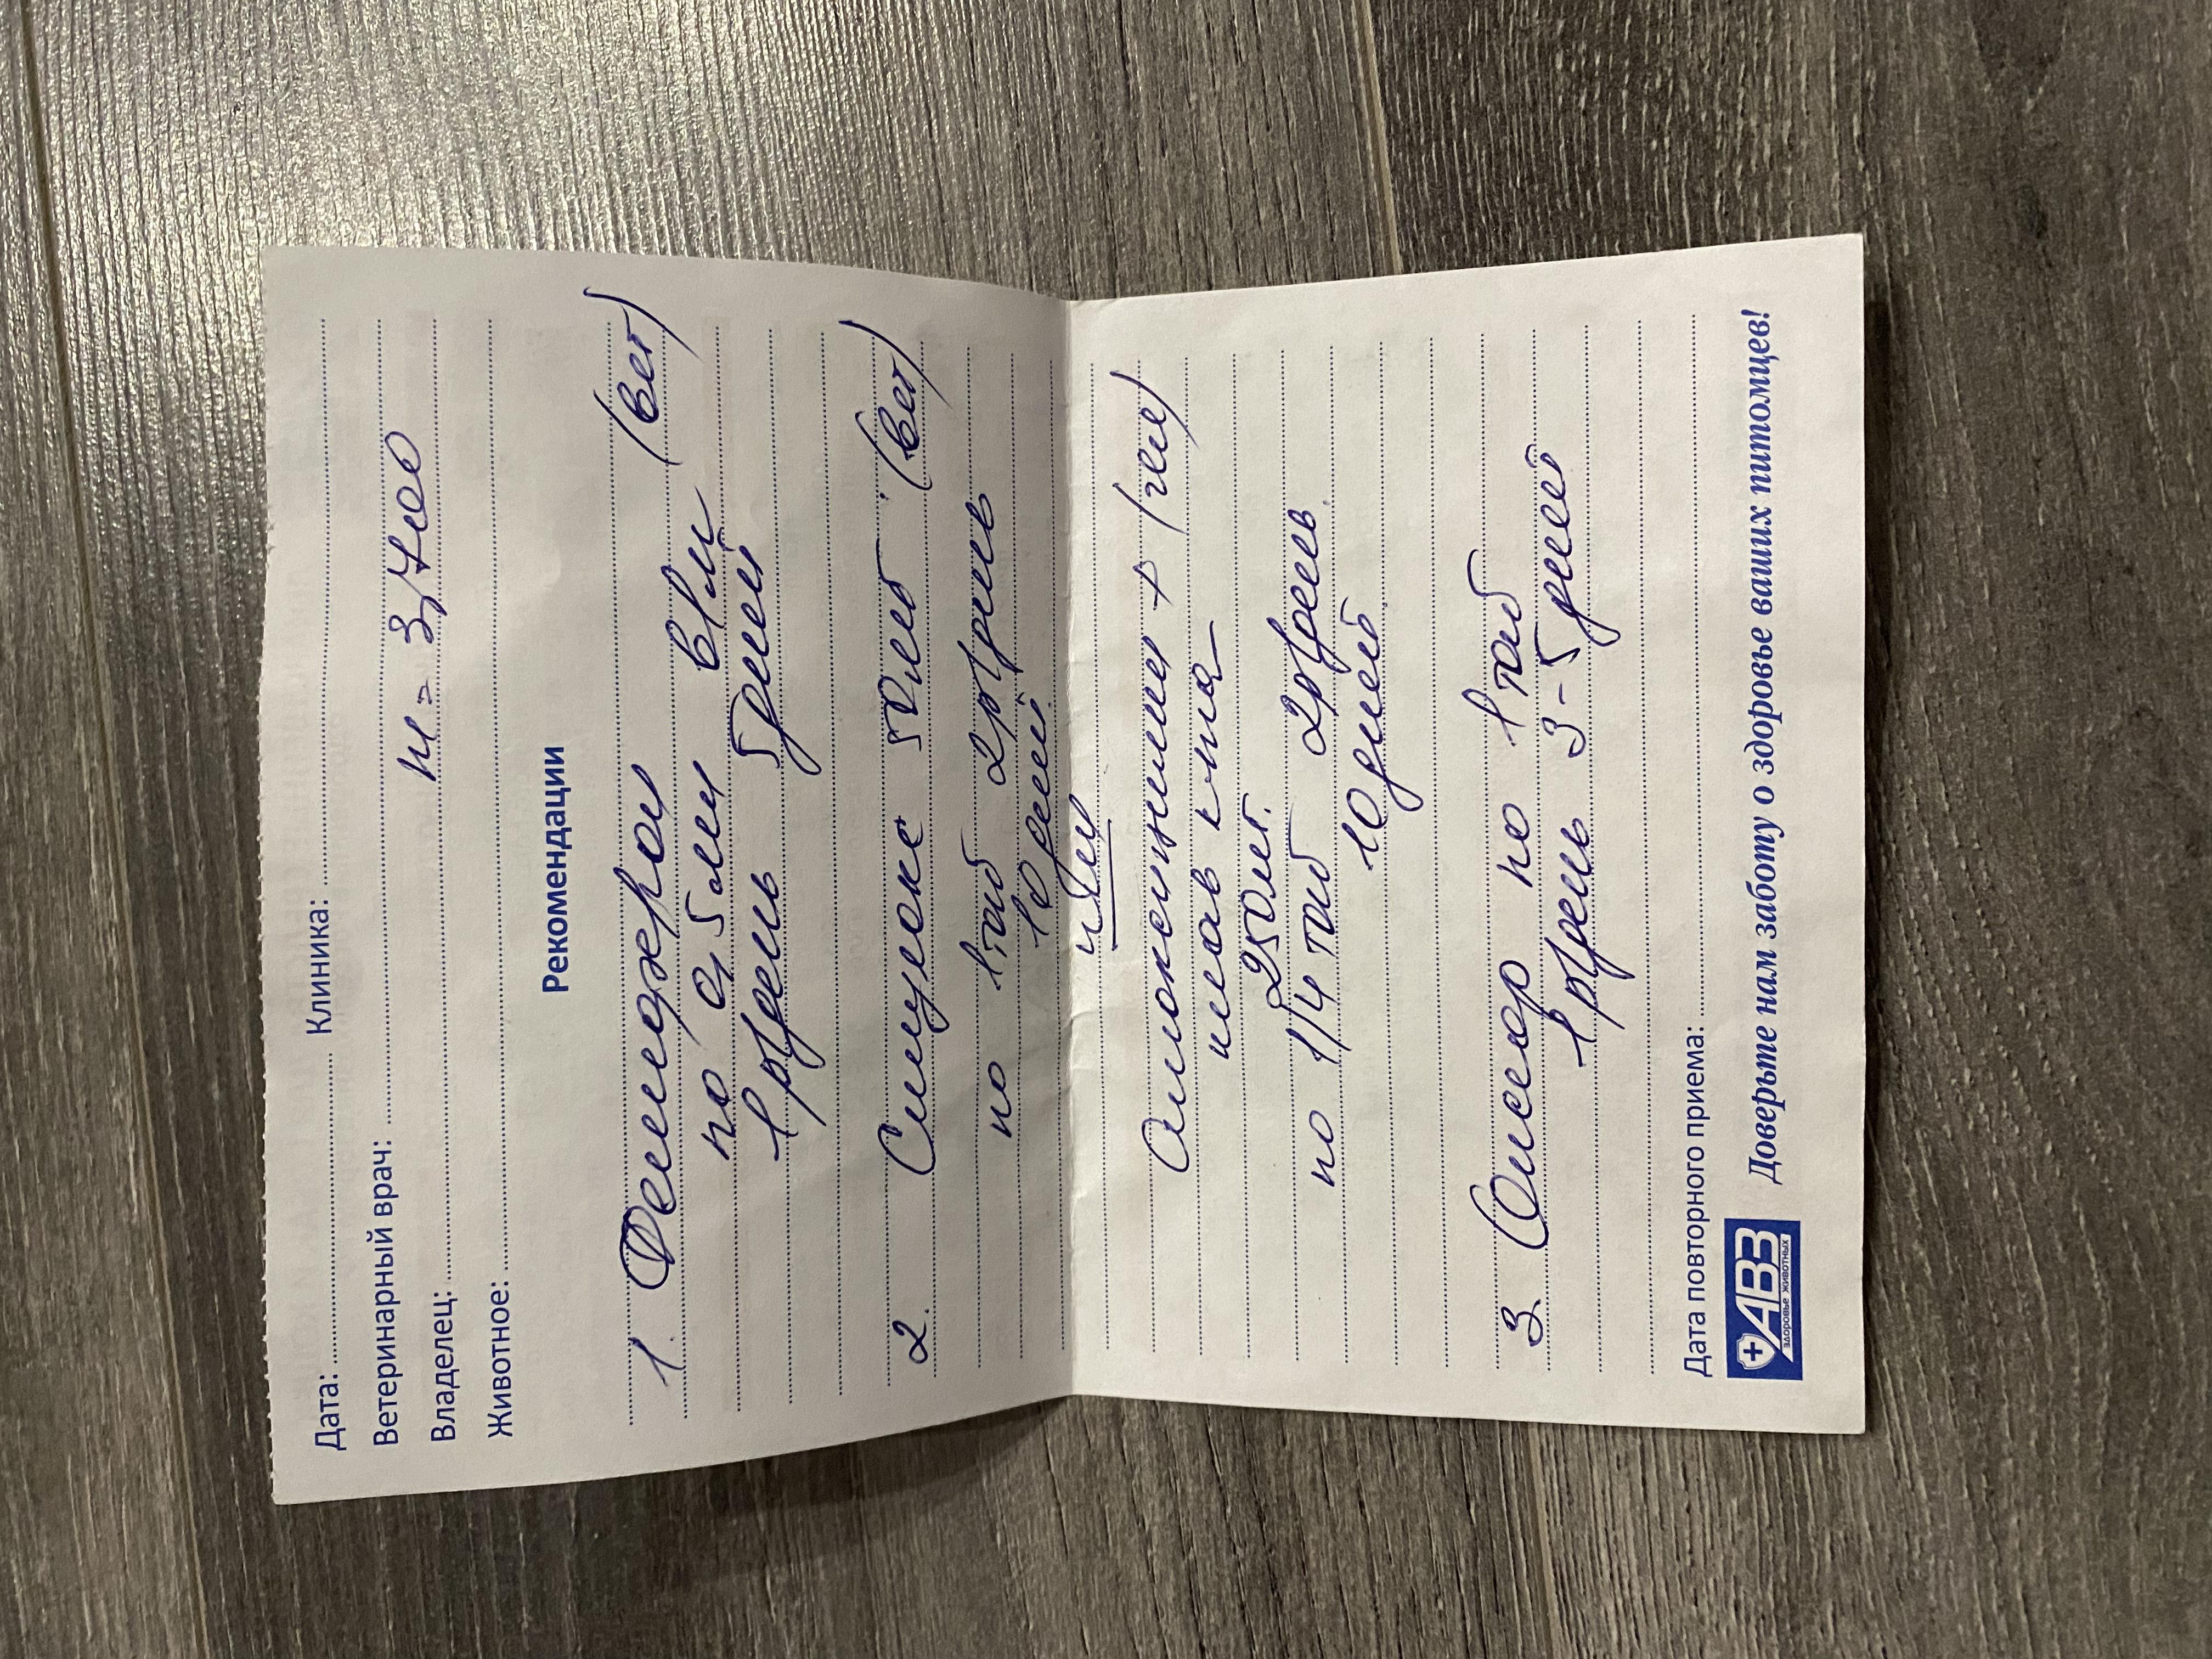 Дата: Клиника:
Ветеринарный врач:
Владелец: м = 3,700
Животное:
Рекомендации
1. Фелиферон (вет)
по 0,5 мл в/м
1 р/день 5 дней
2. Синулокс 50мг (вет)
по 1 таб 2р/день
10 дней
или
Амоксициллин + (чел)
клав к-та
250мг.
по 1/4 таб 2р/день
10 дней.
3. Онсиор по 1 таб
1 р/день 3-5 дней
Дата повторного приема:
АВЗ
здоровье животных
Доверьте нам заботу о здоровье ваших питомцев!